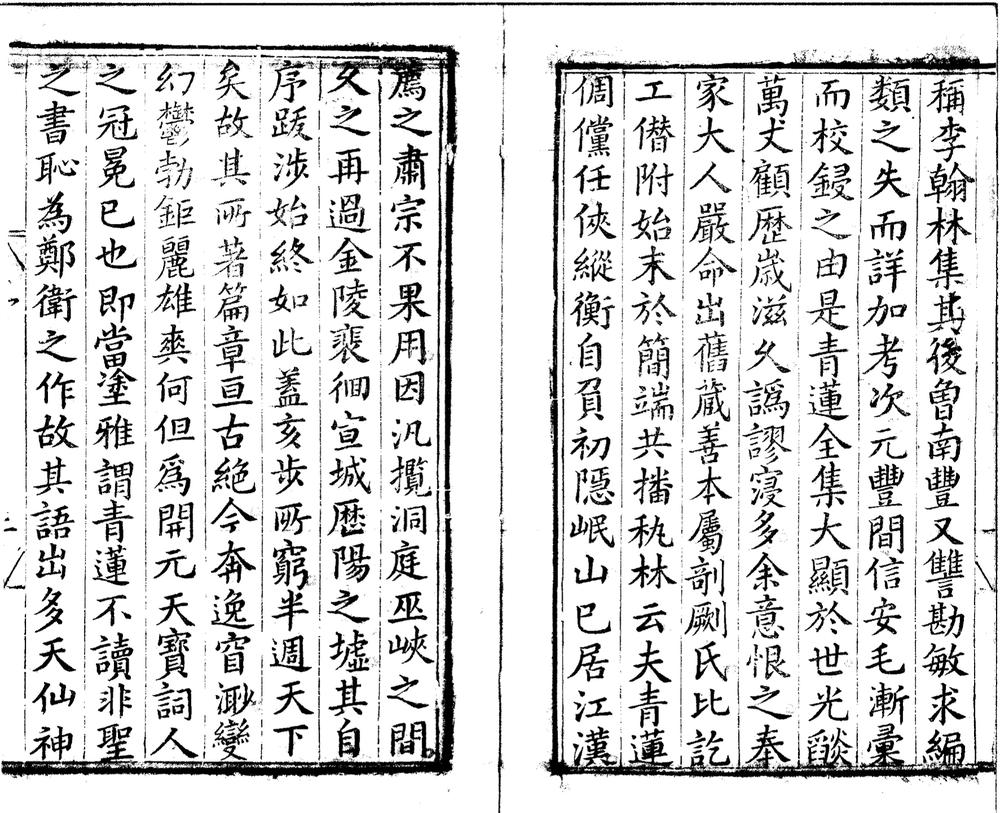 稱李翰林集其後曾南豐又讐勘敏求編
類之失而詳加考次元豐間信安毛漸彙
而校鋟之由是青蓮全集大顯於世光燄
萬丈顧歷歲滋久譌謬寖多余意恨之奉
家大人嚴命出舊藏善本屬剞劂氏比訖
工僭附始末於簡端共播秇林云夫青蓮
倜儻任俠縱衡自負初隱岷山已居江漢
薦之肅宗不果用因汎攬洞庭巫峽之間
久之再過金陵裴徊宣城歷陽之墟其自
序跋涉始終如此蓋亥步所窮半週天下
矣故其所著篇章亘古絶今奔逸窅渺變
幻鬱勃鉅麗雄奭何但爲開元天寶詞人
之冠冕已也即當塗雅謂青蓮不讀非聖
之書恥為鄭衛之作故其語出多天仙神